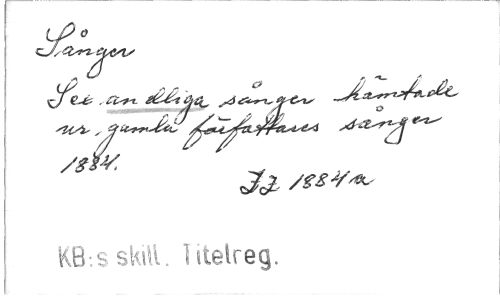 Sånger
Sex andliga sånger hämtade
ur gamla författares sånger
1884.
1884
KB:s skill. Titelreg.